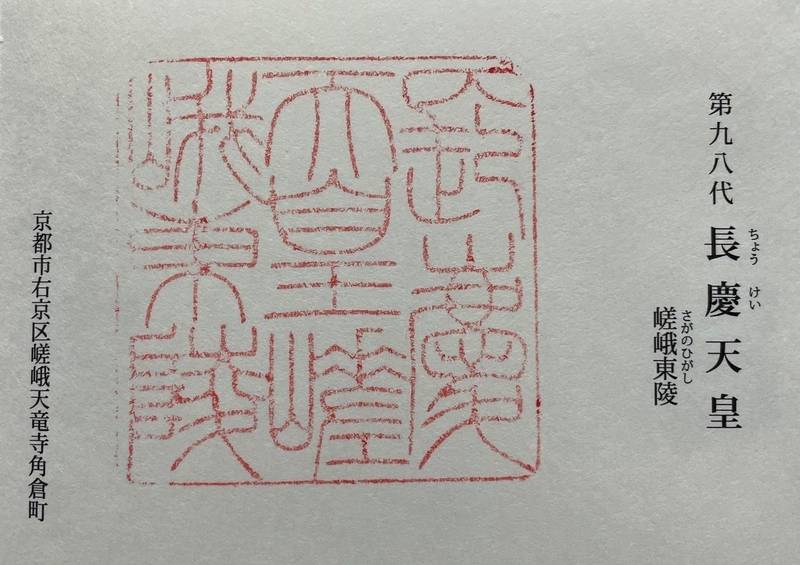 第九八代 長慶天皇
ちょう けい
嵯峨東陵
さがのひがし
長慶
天皇嵯
峨東陵
京都市右京区嵯峨天竜寺角倉町